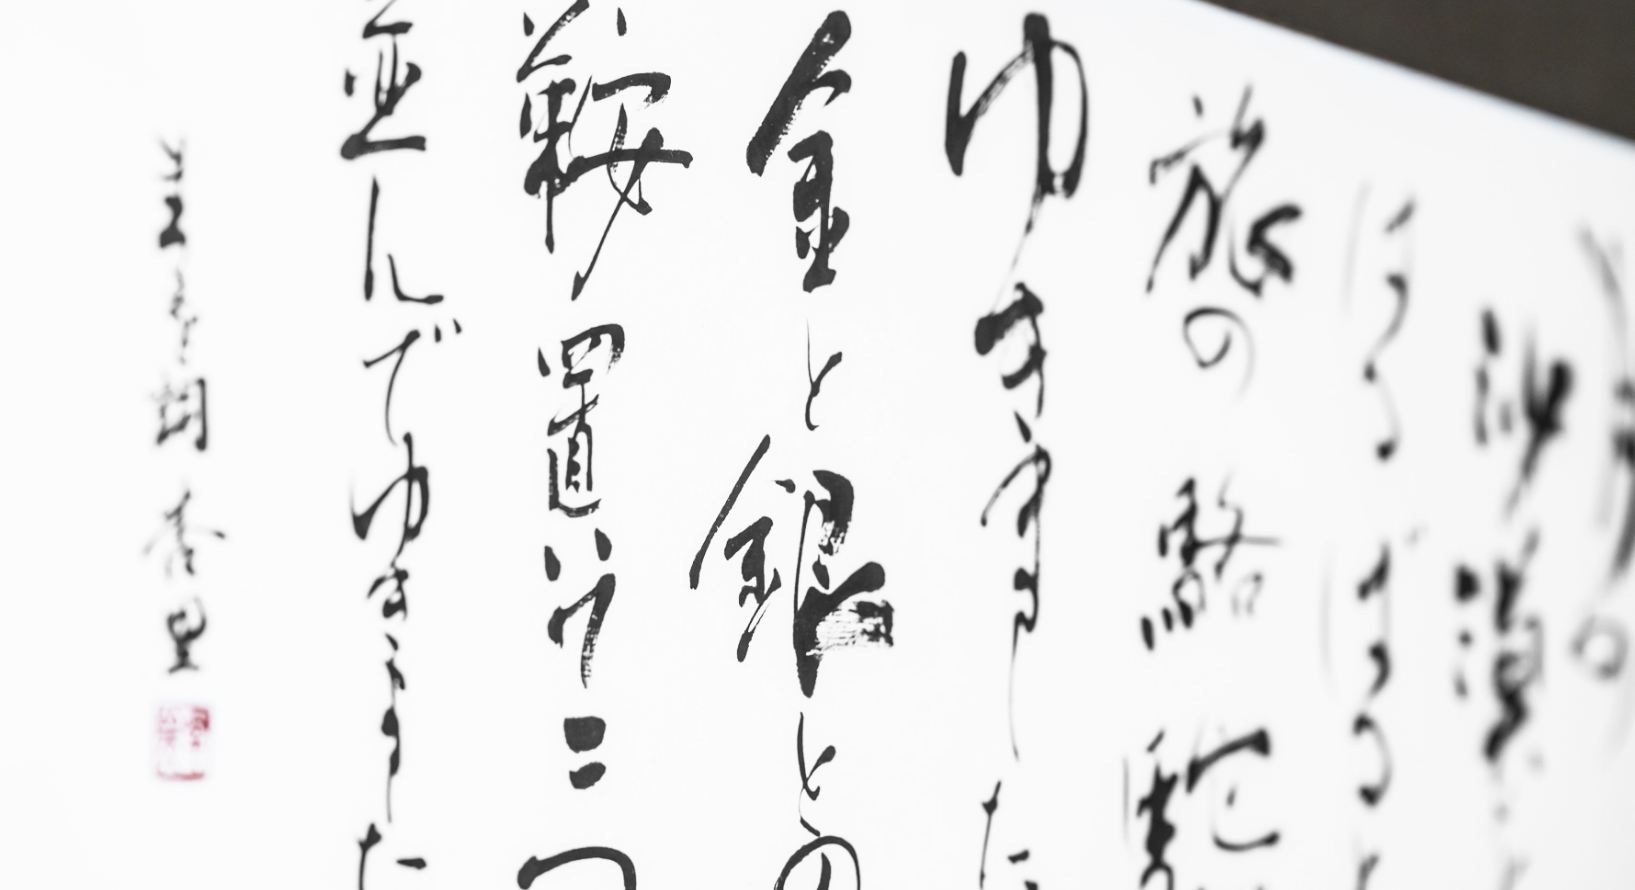 の
沙漠
はるばると
旅の駱駝
ゆきました
金と銀との
鞍置いて二つ
並んでゆきました
詞